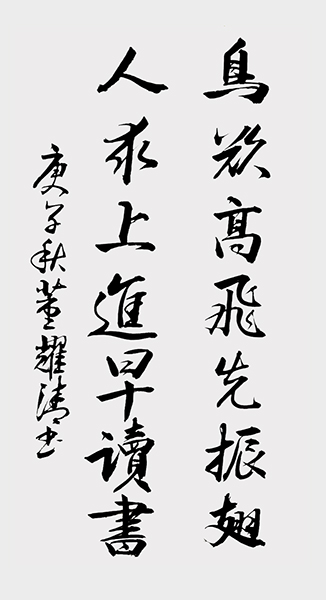 鳥欲高飛先振翅
人求上進早讀書
庚子秋董耀清書